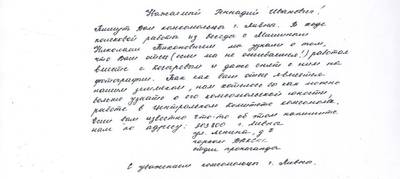 Уважаемый Геннадий Иванович!
Пишут Вам комсомольцы г. Ливны. В ходе
поисковой работы из беседы с Машиным
Николаем Тихоновичем мы узнали о том,
что Ваш отец (если мы не ошибаемся!) работал
вместе с Косаревым и даже снят с ним на
фотографии. Так как Ваш отец является
нашим земляком, нам хотелось бы как можно
больше узнать о его комсомольской юности,
работе в Центральном Комитете комсомола.
Если вам известно что-то об этом напишите
нам по адресу: 303800 г. Ливны
ул. Ленина, д. 7
горком ВЛКСМ
отдел пропаганды
С уважением комсомольцы г. Ливны.